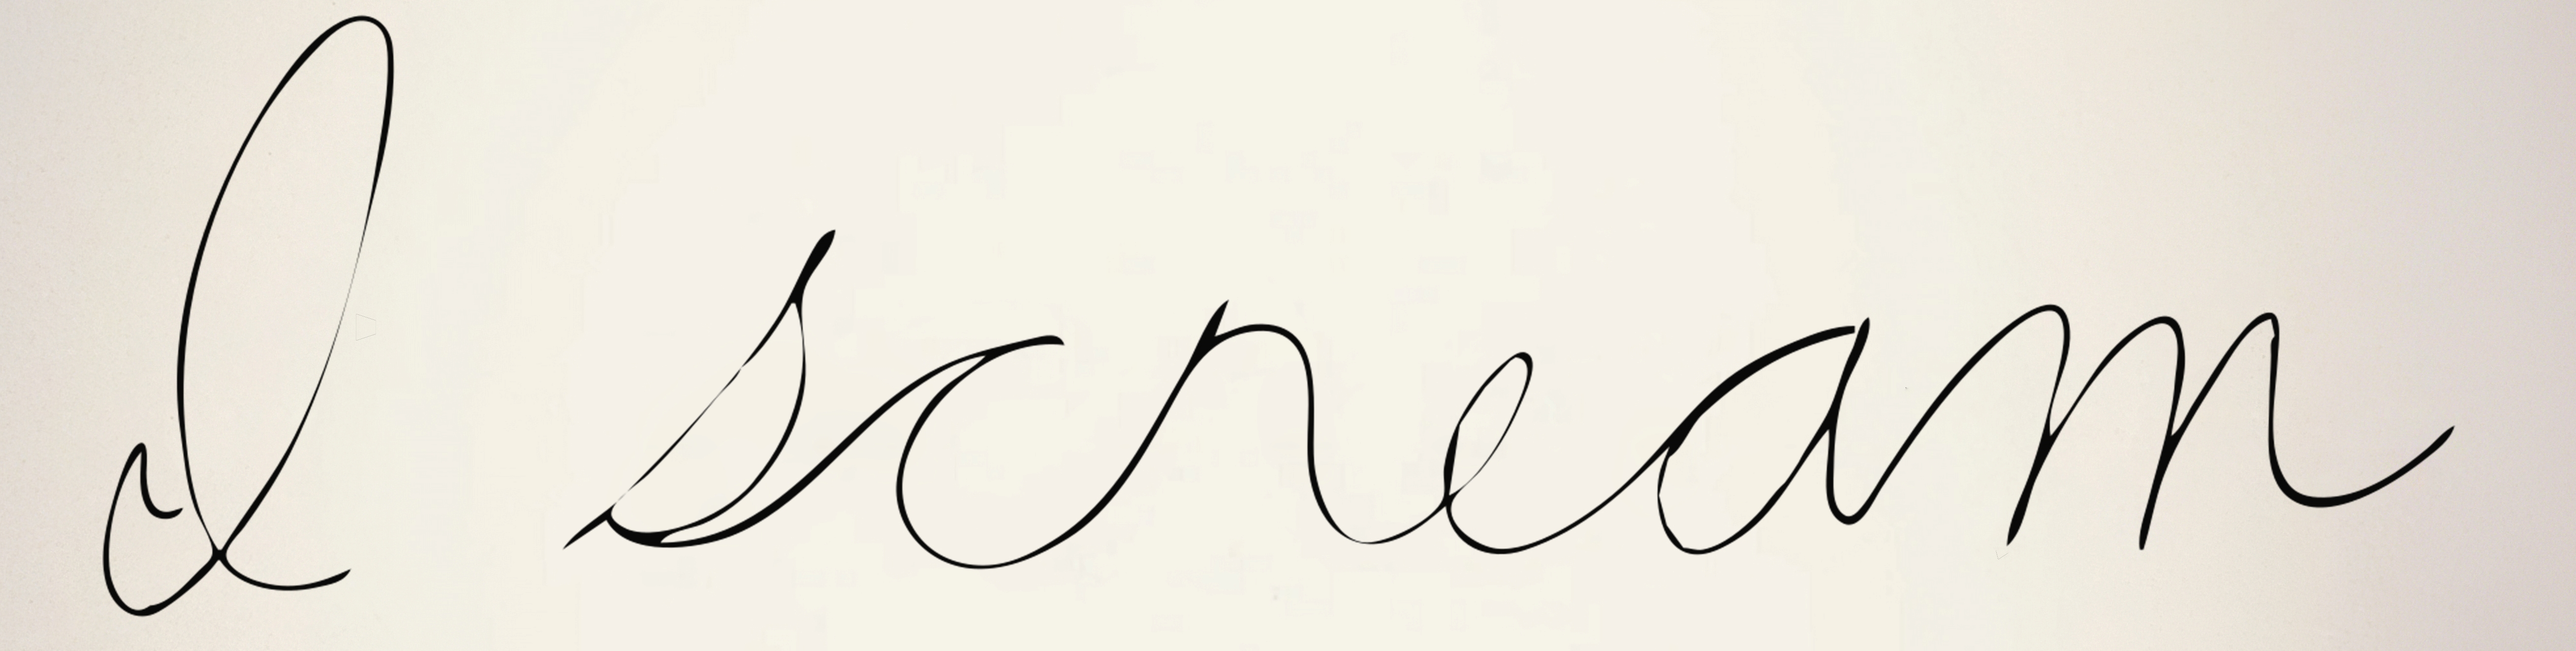 I scream